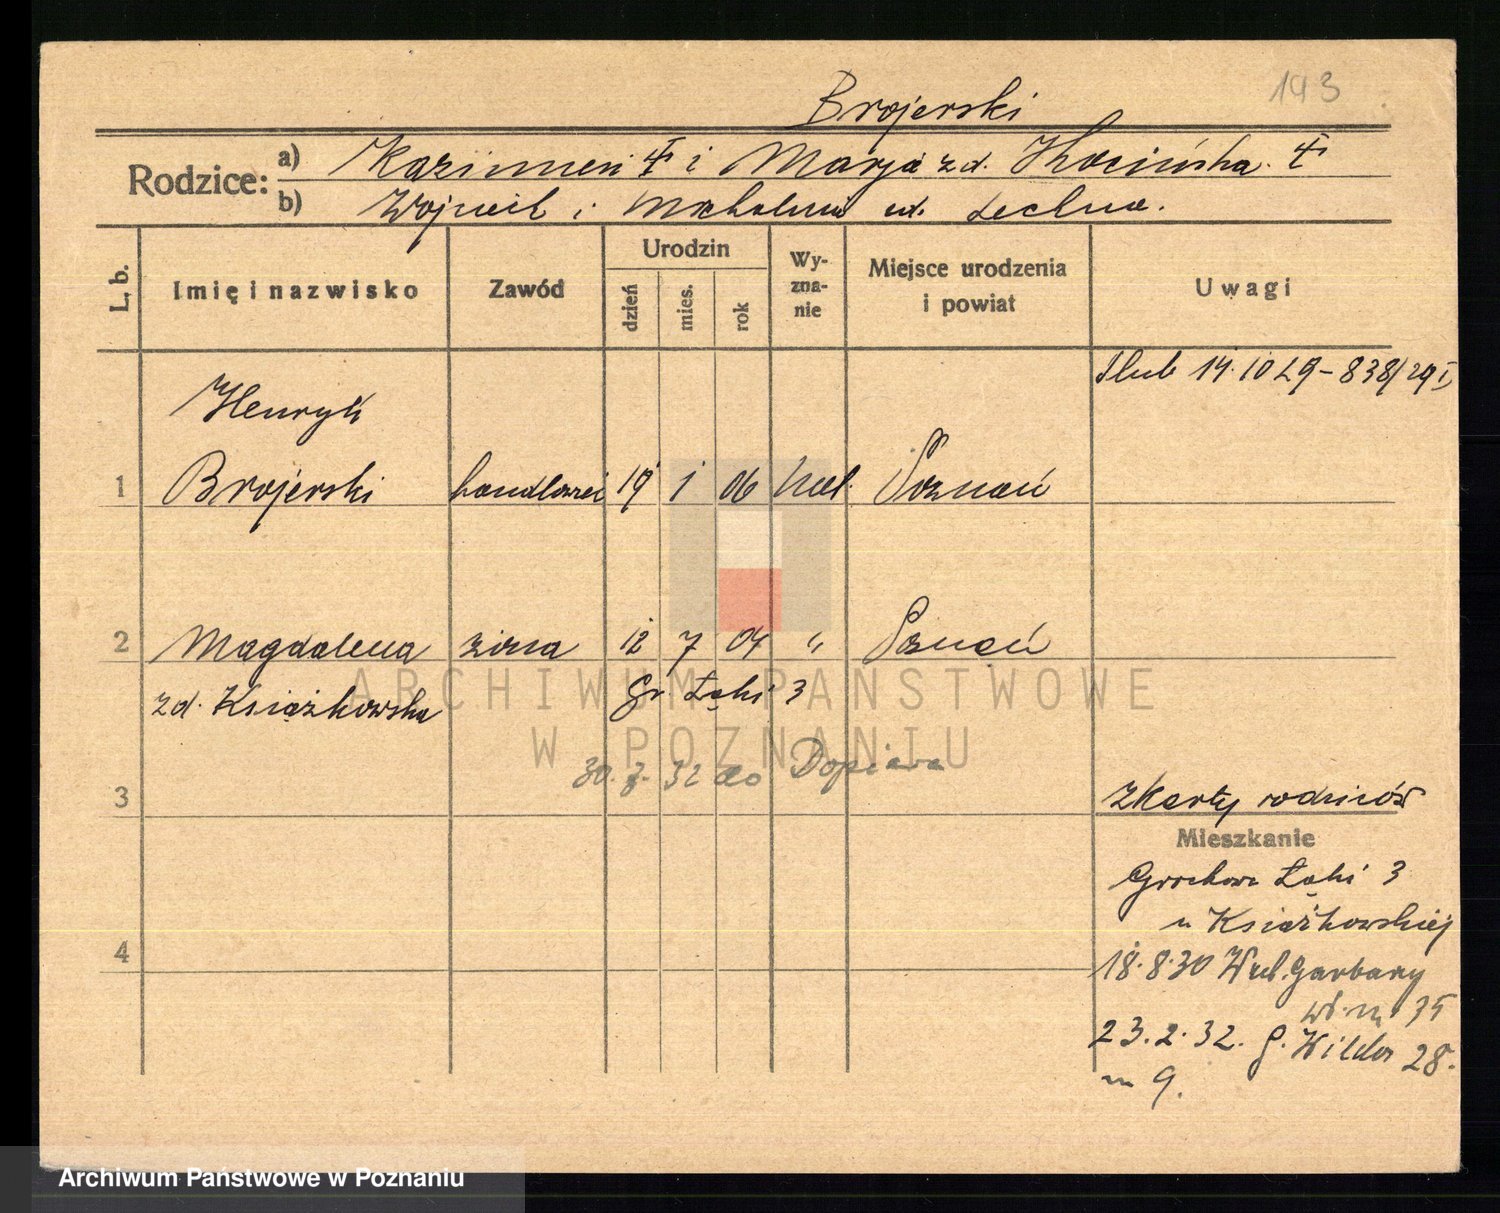 193
Brojerski
Rodzice: a) Kazimierz i Marja zd.
b) Wojciech i Michalina zd.
L. b. Imię i nazwisko Zawód Urodzin dzień mies. rok Wyznanie Miejsce urodzenia i powiat Uwagi
Ślub 14.10 29 – 838/29 I
Henryk
1 Brojerski handlowiec 19 1 06 kat. Poznań
2 Magdalena żona 12 7 04 " Poznań
zd. Książkowska Gr. Łąki 3
30. 3. 32 do Dopiewa
3 z karty rodziców
Mieszkanie
Grochowe Łąki 3
u Książkowskiej
4 18.8.30 Wiel. Garbary
35
23.2.32. G. Wilda 28.
m 9.
ARCHIWUM PAŃSTWOWE
W POZNANIU
Archiwum Państwowe w Poznaniu